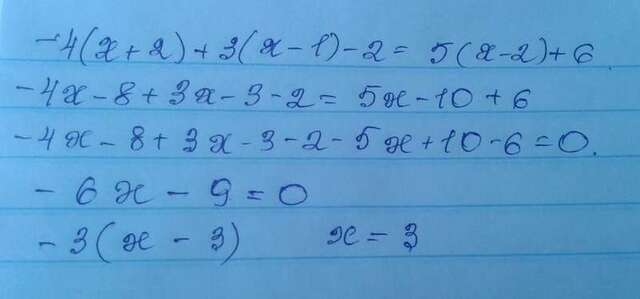 -4(x+2)+3(x-1)-2= 5(x-2)+6
-4x-8+3x-3-2=5x-10+6
-4x-8+3x-3-2-5x+10-6=0.
-6x-9=0
-3(x-3) x=3